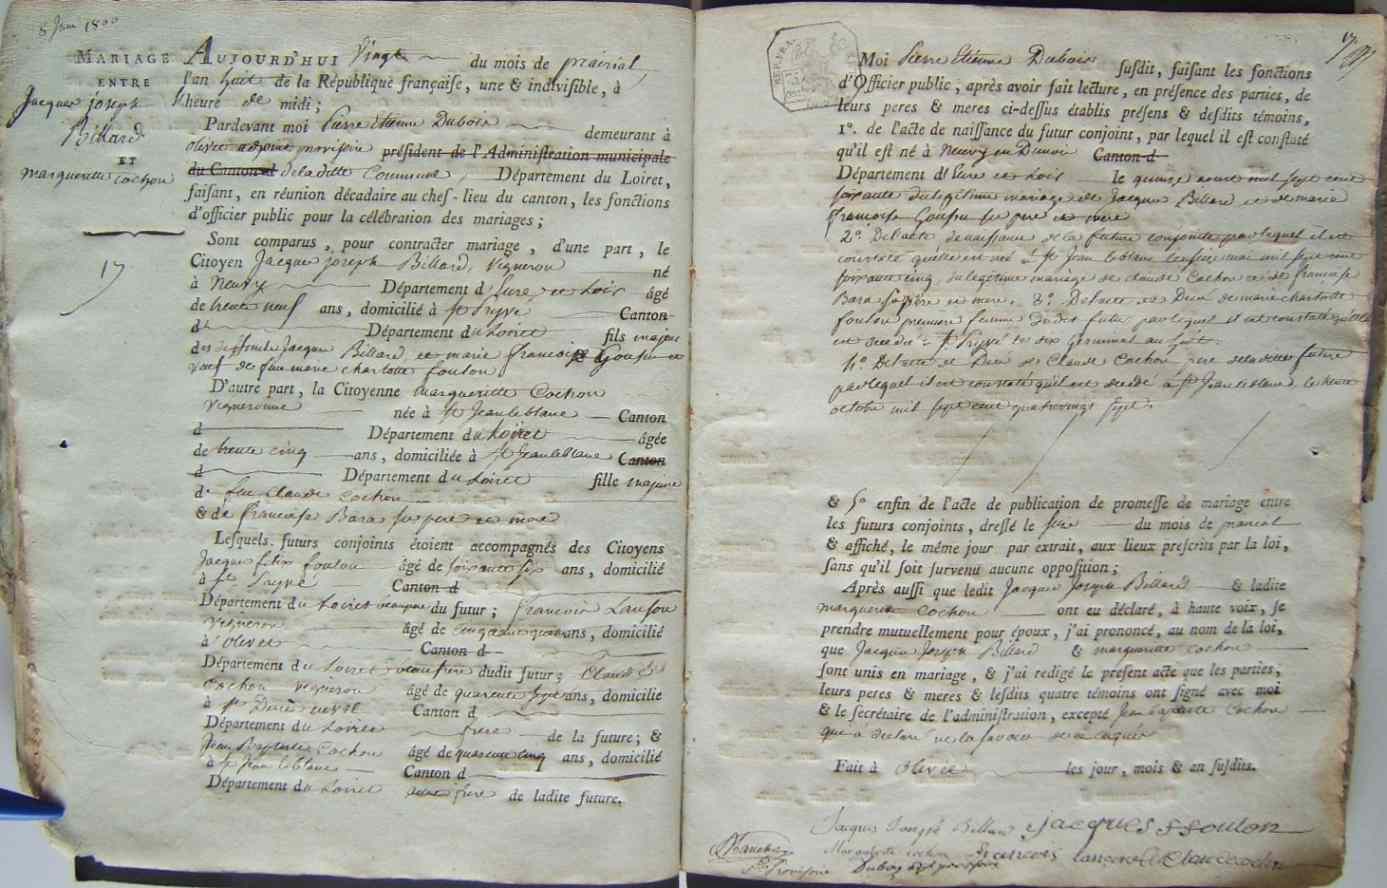 8 Juin 1800
MARIAGE
ENTRE
Jacques joseph
Billard
ET
margueritte cochon
17
AUJOURD'HUI Vingt du mois de prairial
l'an huit de la République française, une & indivisible, à
heure de midi;
Pardevant moi Pierre Etienne Dubois demeurant à
olivet adjoint provisoire président de l'Administration municipale
du Canton d de laditte Commune, Département du Loiret,
faisant, en réunion décadaire au chef-lieu du canton, les fonctions
d'officier public pour la célébration des mariages;
Sont comparus, pour contracter mariage, d'une part, le
Citoyen Jacques joseph Billard, Vigneron né
à Neuvy Département d'Eure et Loir âgé
de trente neuf ans, domicilié à St Pryvé Canton
d Département du Loiret fils majeur
des deffunts Jacques Billard et marie francoise Goussu et
veuf de feue marie charlotte foulon
D'autre part, la Citoyenne marguerite Cochon
Vigneronne née à St Jean le blanc Canton
d Département du Loiret âgée
de trente cinq ans, domiciliée à St Jean le blanc Canton
d Département du Loiret fille majeure
de feu Claude Cochon
& de francoise Bara ses pere et mere
Lesquels futurs conjoints étoient accompagnés des Citoyens
Jacques felix foulon âgé de soixante six ans, domicilié
à St Pryvé Canton d
Département du Loiret beaupere du futur; francois
Vigneron âgé de ans, domicilié
à olivet Canton d
Département du Loiret beaufrere dudit futur; Claude
Cochon vigneron âgé de quarente sept ans, domicilié
à St Canton d
Département du Loiret frere de la future; &
Jean Baptiste Cochon âgé de quarente cinq ans, domicilié
à St Jean le blanc Canton d
Département du Loiret frere de ladite future.
17
Moi Pierre Etienne Dubois susdit, faisant les fonctions
d'Officier public, après avoir fait lecture, en présence des parties, de
leurs peres & meres ci-dessus établis présens & desdits témoins,
1°. de l'acte de naissance du futur conjoint, par lequel il est constaté
qu'il est né à Neuvy en Dunois Canton d
Département d'Eure et Loir le quinze mil sept cent
soixante du legitime mariage de Jacques Billard et de marie
francoise Goussu ses pere et mere
2° De l'acte de naissance de la future conjointe par lequel il est
constaté quelle est née à St Jean le blanc le mai mil sept cent
soixante cinq, du legitime mariage de claude Cochon et de francoise
Bara ses pere et mere, 3° De l'acte de Deces de marie charlotte
foulon premiere femme dudit futur par lequel il est constaté quelle
est decedée à St Pryvé le dix Germinal an sept.
4° De l'acte de Deces de Claude Cochon pere de laditte future
par lequel il est constaté quil est decédé à St Jean le blanc le trente
octobre mil sept cent quatrevingt sept.
& 5° enfin de l'acte de publication de promesse de mariage entre
les futurs conjoints, dressé le du mois de prairial
& affiché, le même jour par extrait, aux lieux prescrits par la loi,
sans qu'il soit survenu aucune opposition;
Après aussi que ledit Jacques Joseph Billard & ladite
marguerite cochon ont eu déclaré, à haute voix, se
prendre mutuellement pour époux, j'ai prononcé, au nom de la loi,
que Jacques Joseph Billard & marguerite cochon
sont unis en mariage, & j'ai redigé le présent acte que les parties,
leurs peres & meres & lesdits quatre témoins ont signé avec moi
& le secrétaire de l'administration, excepté Jean baptiste Cochon
qui a declaré ne la savoir de ce enquis
Fait à olivet les jour, mois & an susdits.
Jacques Joseph Billard Jacques F Foulon
Marguerite cochon francois Claude cochon
Provisoire Dubois